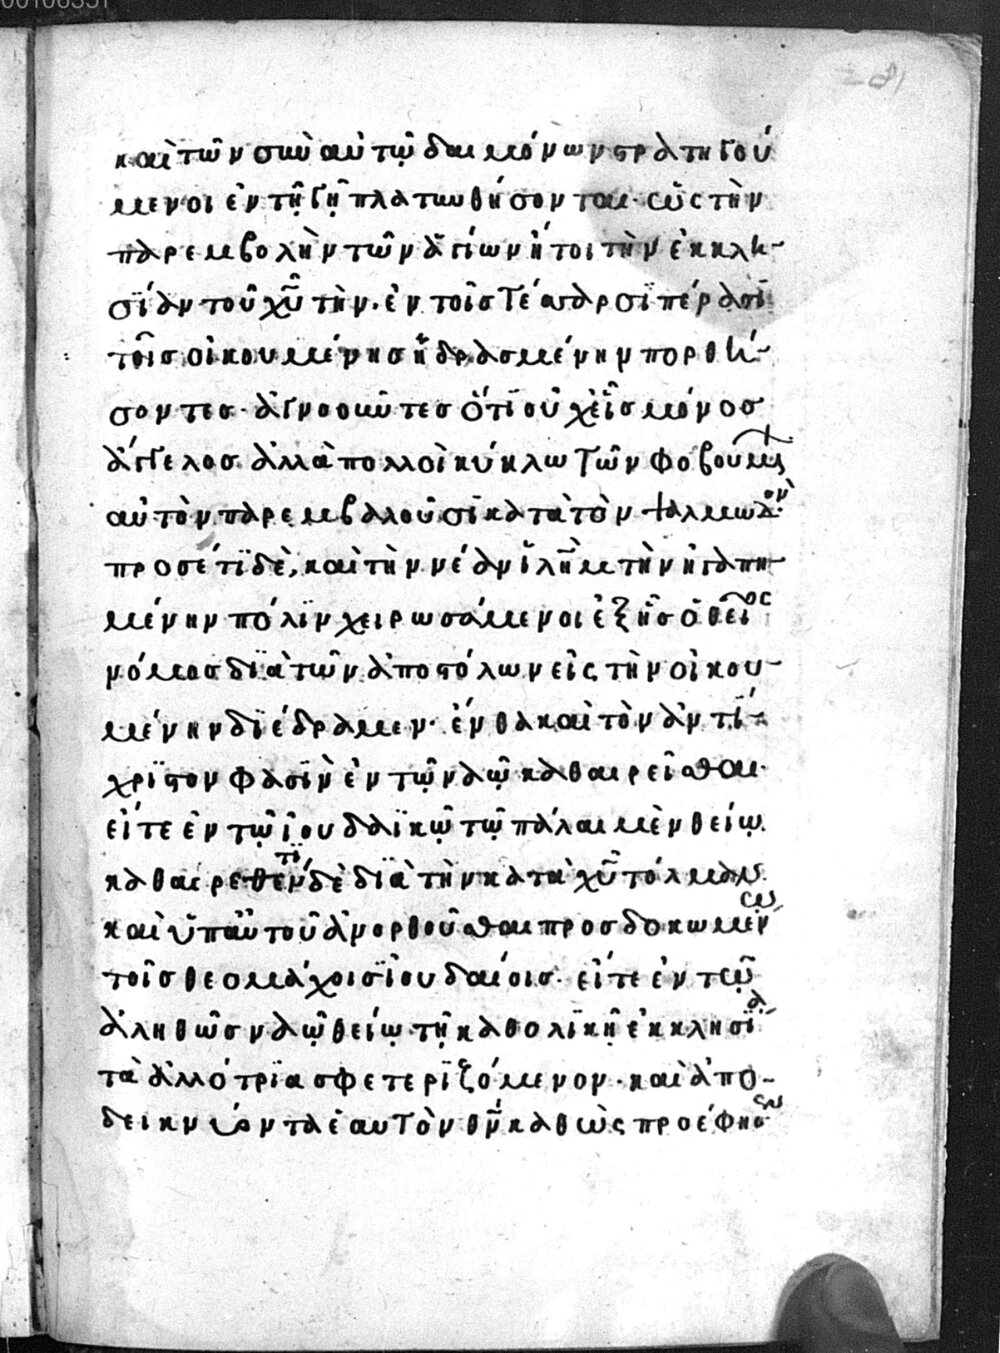 00106351
καὶ τῶν σὺν αὐτῷ δαιμόνων στρατηγού
μενοι ἐν τῇ γῇ πλατυνθήσονται· ὡς τὴν
παρεμβολὴν τῶν ἁγίων ἤτοι τὴν ἐκκλη-
σΐαν τοῦ χ̅υ̅ τὴν· ἐν τοῖς τέσαρσϊ πέρασϊ
τοῖς οἰκουμένης ἡδρασμένην πορθή-
σοντες· ἀγνοοῦντες ὅτϊ οὐχ εἷς μόνος
ἄγγελος ἀλλὰ πολλοὶ κύκλω τῶν φοβουμ
αὐτὸν παρεμβαλοῦσϊ κατὰ τὸν ψαλμωδὸν·
προσέτϊ δὲ, καὶ τὴν νέαν ϊ̅λ̅η̅μ̅ τὴν ἠγαπη-
μένην πόλϊν χειρωσάμενοι ἐξ ἧς ὁ θεῖος
νόμος διὰ τῶν ἀποστόλων εἰς τὴν οἰκου-
μένην διέδραμεν· ἔνθα καὶ τὸν ἀντϊ-
χρϊστον φασῒν ἐν τῷ ναῷ καθαιρεῖσθαι·
εἴτε ἐν τῷ ϊουδαϊκῷ τῷ πάλαι μὲν θείῳ
καθαιρεθέντϊ δὲ διὰ τὴν κατὰ χ̅υ̅ τόλμαν
καὶ ὑπ αὐτοῦ ἀνορθοῦσθαι προσδοκωμένω
τοῖς θεομάχοις ϊουδαίοις· εἴτε ἐν τῷ
ἀληθῶς ναῷ θείῳ τῇ καθολϊκῇ ἐκκλησίᾳ
τὰ ἀλλότρϊα σφετερϊζόμενον· καὶ ἀπο-
δεικνύοντα ἑαυτὸν θ̅ν̅ καθὼς προέφησ